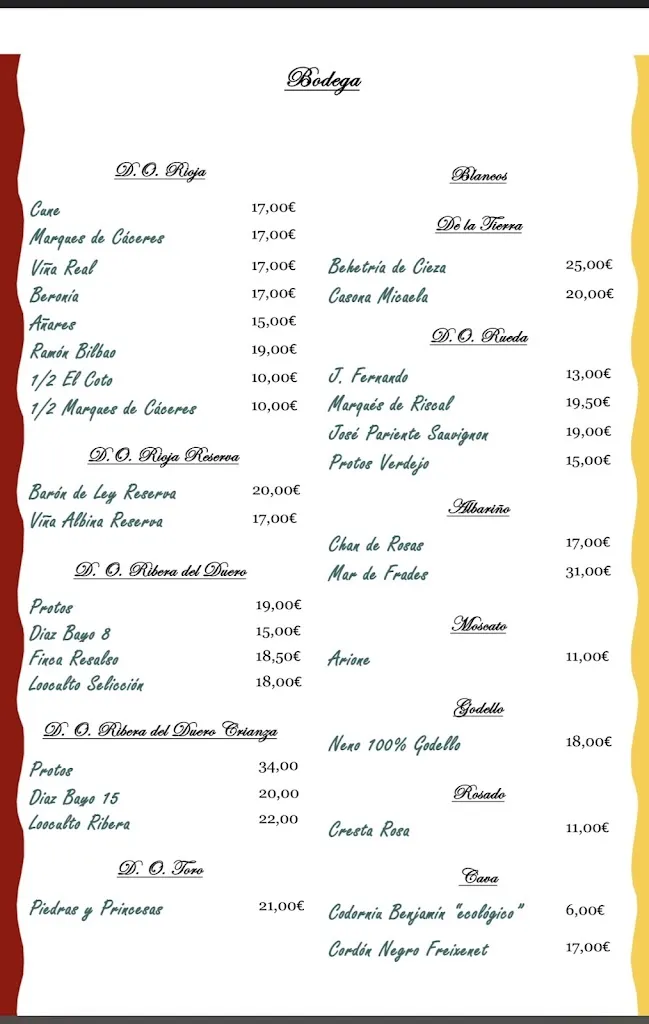 Bodega
D. O. Rioja
Cune 17,00€
Marques de Cáceres 17,00€
Viña Real 17,00€
Beronía 17,00€
Añares 15,00€
Ramón Bilbao 19,00€
1/2 El Coto 10,00€
1/2 Marques de Cáceres 10,00€
D. O. Rioja Reserva
Barón de Ley Reserva 20,00€
Viña Albina Reserva 17,00€
D. O. Ribera del Duero
Protos 19,00€
Diaz Bayo 8 15,00€
Finca Resalso 18,50€
Looculto Selicción 18,00€
D. O. Ribera del Duero Crianza
Protos 34,00
Diaz Bayo 15 20,00
Looculto Ribera 22,00
D. O. Toro
Piedras y Princesas 21,00€
Blancos
De la Tierra
Behetría de Cieza 25,00€
Casona Micaela 20,00€
D. O. Rueda
J. Fernando 13,00€
Marqués de Riscal 19,50€
José Pariente Sauvignon 19,00€
Protos Verdejo 15,00€
Albariño
Chan de Rosas 17,00€
Mar de Frades 31,00€
Moscato
Arione 11,00€
Godello
Neno 100% Godello 18,00€
Rosado
Cresta Rosa 11,00€
Cava
Codorniu Benjamín "ecológico" 6,00€
Cordón Negro Freixenet 17,00€